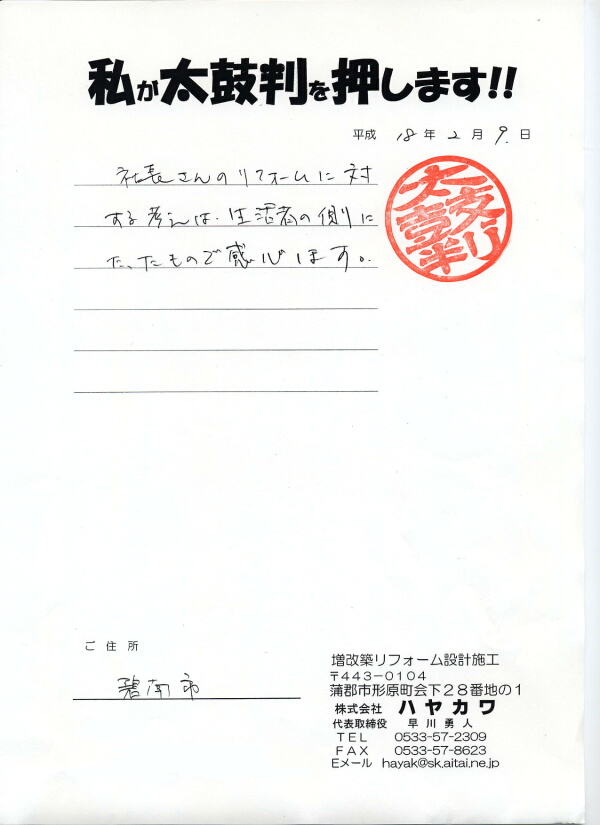 私が太鼓判を押します!!
平成 18 年 2 月 9 日
社長さんのリフォームに対
する考えは、生活者の側に
たったもので感心します。
太鼓判
ご住所
碧南市
増改築リフォーム設計施工
〒443-0104
蒲郡市形原町会下28番地の1
株式会社 ハヤカワ
代表取締役 早川勇人
TEL 0533-57-2309
FAX 0533-57-8623
Eメール hayak@sk.aitai.ne.jp